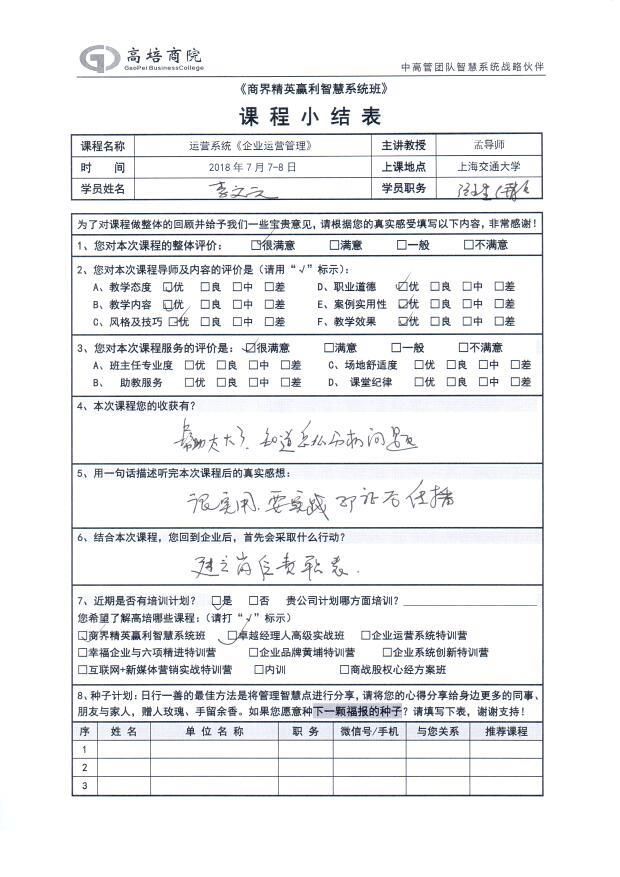 高培商院
GaoPei BusinessCollege
中高管团队智慧系统战略伙伴
《商界精英赢利智慧系统班》
课程小结表
课程名称 运营系统《企业运营管理》 主讲教授 孟导师
时 间 2018年7月7-8日 上课地点 上海交通大学
学员姓名 李文元 学员职务
为了对课程做整体的回顾并给予我们一些宝贵意见,请根据您的真实感受填写以下内容,非常感谢!
1、您对本次课程的整体评价: ☑很满意 □满意 □一般 □不满意
2、您对本次课程导师及内容的评价是(请用“√”标示):
A、教学态度 ☑优 □良 □中 □差 D、职业道德 ☑优 □良 □中 □差
B、教学内容 ☑优 □良 □中 □差 E、案例实用性 ☑优 □良 □中 □差
C、风格及技巧 ☑优 □良 □中 □差 F、教学效果 ☑优 □良 □中 □差
3、您对本次课程服务的评价是: ☑很满意 □满意 □一般 □不满意
A、班主任专业度 □优 □良 □中 □差 C、场地舒适度 □优 □良 □中 □差
B、 助教服务 □优 □良 □中 □差 D、 课堂纪律 □优 □良 □中 □差
4、本次课程您的收获有?
帮助太大了,知道怎么分析问题
5、用一句话描述听完本次课程后的真实感想:
很实用,要实践
6、结合本次课程,您回到企业后,首先会采取什么行动?
建立岗位责职表.
7、近期是否有培训计划? ☑是 □否 贵公司计划哪方面培训?
您希望了解高培哪些课程:(请打“√”标示)
☑商界精英赢利智慧系统班 ☑卓越经理人高级实战班 □企业运营系统特训营
□幸福企业与六项精进特训营 □企业品牌黄埔特训营 □企业系统创新特训营
□互联网+新媒体营销实战特训营 □内训 □商战股权心经方案班
8、种子计划:日行一善的最佳方法是将管理智慧点进行分享,请将您的心得分享给身边更多的同事、
朋友与家人,赠人玫瑰、手留余香。如果您愿意种下一颗福报的种子?请填写下表,谢谢支持!
序 姓 名 单 位 名 称 职 务 微信号/手机 与您关系 推荐课程
1
2
3